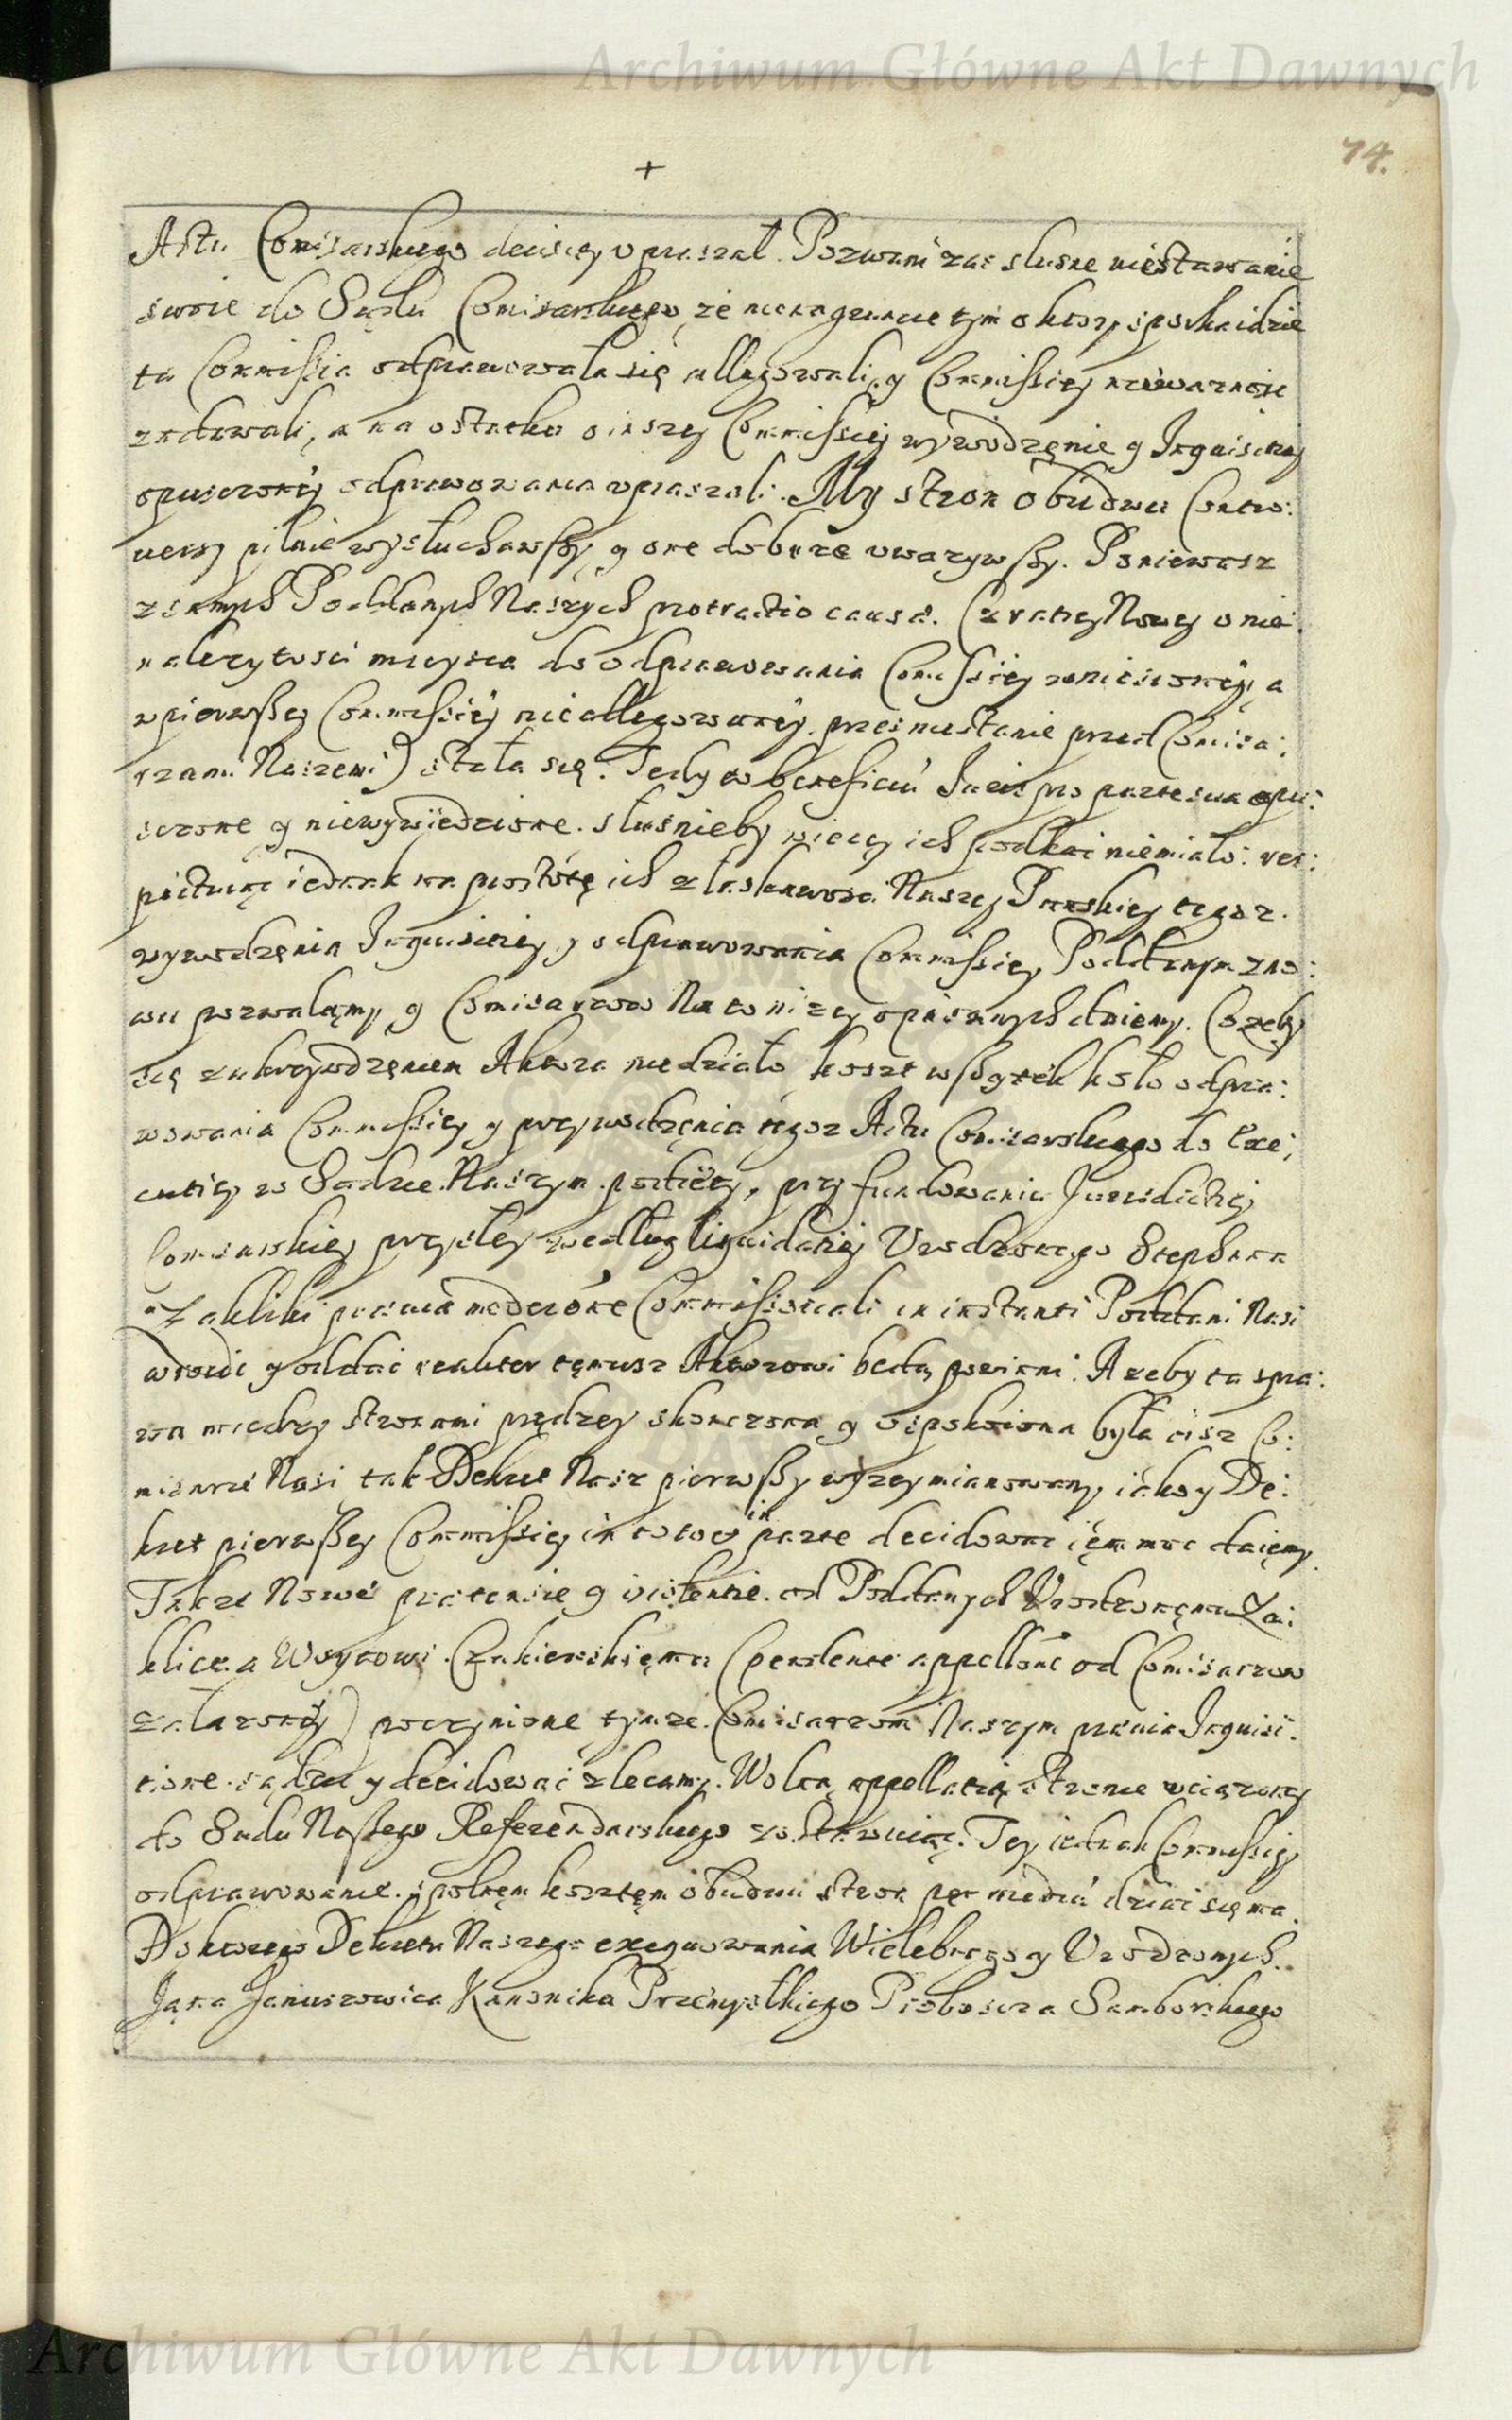 Archiwum Główne Akt Dawnych
74.
+
Actu Comisarskiego decisiey upraszał. Pozwani zas slusne niestawanie
swoie do Sądu Comisarskiego, że nie na gruncie tym o ktory spor
ta Commissia odprawowała się allegowali, y Commissiey niewaznosc
zadawali, a na ostatku o inszey Commissiey wywodzęnie y Inquisitiey
opusczoney odprawowania upraszali. My stron obudwu Contro:
uersy pilnie wysłuchawszy, y one dobrze uwazywszy. Poniewasz
z samych Poddanych Naszych protractio causæ. (z racyey Nowey o nie:
nalezytosci mieysca do odprawowania Comissiey wniesioney, a
w pierwszey Commissiey nie allegowaney przes niestanie przed Comisa:
rzami Naszemi) stała się. Tedy to beneficiu Iuris pro parte sua opu:
sczone y niewywiedzione. słusnieby wiecey ich potkac niemiało: res:
pectuiąc iednak na prostotę ich z łaskawosci Naszey Panskiey tegoz
wywodzęnia Inquisitiey, y odprawowania Commissiey Poddanym zno:
wu pozwalamy, y Comisarzow Na to nizey opisanych daiemy. Czeby
się z ukrzywdzęniem Aktora niedziało koszt wszytek koło odpra:
wowania Commissiey y przywodzęnia tegoz Actu Comisarskiego do Exe:
cutiey w Sądzie Naszym podięty, przy fundowaniu Iurisdictiey
Comisarskiey przyszley według liquidatiey Urodzonego Stephana
Zakliki prævia moderõne Commissionali in instanti Poddani Nasi
wrocic y oddac realiter tęmusz Aktorowi będą powinni. A zeby ta spra:
wa miedzy stronami prędzey skonczona y uspokoiona była cisz Co:
misarze Nasi tak Dekret Nasz pierwszy wyzeymianowany, iako y De:
kret pierwszey Commissiey in toto et in parte decidowac ięm moc daięmy.
Takze Nowe prætensie y violentie od Poddanych Urodzonęmu Za:
klice a Woytowi (pendente appellõne od Comisarzow
załozoney) poczynione tymze Comisarzom Naszym prævia Inquisi:
tione sądzic y decidowac zlecamy. Wolną appellatią stronie uciązoney
do Sądu Naszego Referendarskiego zostawuiąc. Tey iednak Commissiey
odprawowanie spolnęm kosztęm obudwu stron per mediũ dziac się ma.
Do ktorego Dekretu Naszego exequowania Wielebnego y Urodzonych
Jana Januszowica Kanonika Przemyslkiego Proboscza Samborskiego
Archiwum Główne Akt Dawnych